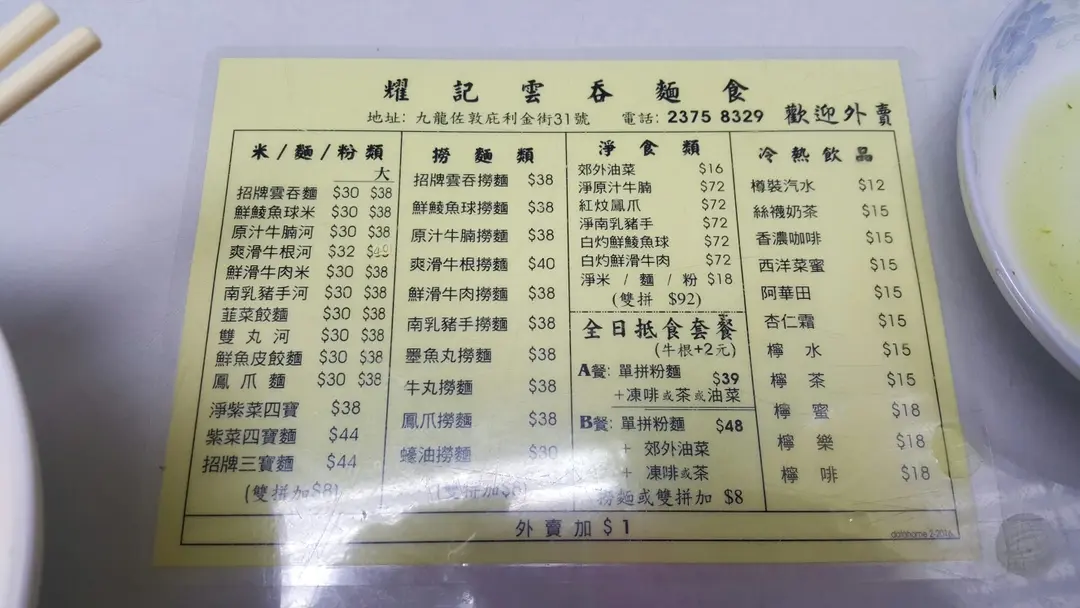 耀記雲吞麵食
地址: 九龍佐敦庇利金街31號 電話: 2375 8329 歡迎外賣
米/麵/粉類
大
招牌雲吞麵 $30 $38
鮮鯪魚球米 $30 $38
原汁牛腩河 $30 $38
爽滑牛根河 $32
鮮滑牛肉米 $30 $38
南乳豬手河 $30 $38
韮菜餃麵 $30 $38
雙丸河 $30 $38
鮮魚皮餃麵 $30 $38
鳳爪麵 $30 $38
淨紫菜四寶 $38
紫菜四寶麵 $44
招牌三寶麵 $44
(雙拼加$8)
撈麵類
招牌雲吞撈麵 $38
鮮鯪魚球撈麵 $38
原汁牛腩撈麵 $38
爽滑牛根撈麵 $40
鮮滑牛肉撈麵 $38
南乳豬手撈麵 $38
墨魚丸撈麵 $38
牛丸撈麵 $38
鳳爪撈麵 $38
蠔油撈麵 $30
(雙拼加$8)
淨食類
郊外油菜 $16
淨原汁牛腩 $72
紅炆鳳爪 $72
淨南乳豬手 $72
白灼鮮鯪魚球 $72
白灼鮮滑牛肉 $72
淨米/麵/粉 $18
(雙拼 $92)
全日抵食套餐
(牛根+2元)
A餐: 單拼粉麵 $39
+凍啡或茶或油菜
B餐: 單拼粉麵 $48
+ 郊外油菜
+ 凍啡或茶
撈麵或雙拼加 $8
冷熱飲品
樽裝汽水 $12
絲襪奶茶 $15
香濃咖啡 $15
西洋菜蜜 $15
阿華田 $15
杏仁霜 $15
檸水 $15
檸茶 $15
檸蜜 $18
檸樂 $18
檸啡 $18
外賣加$1